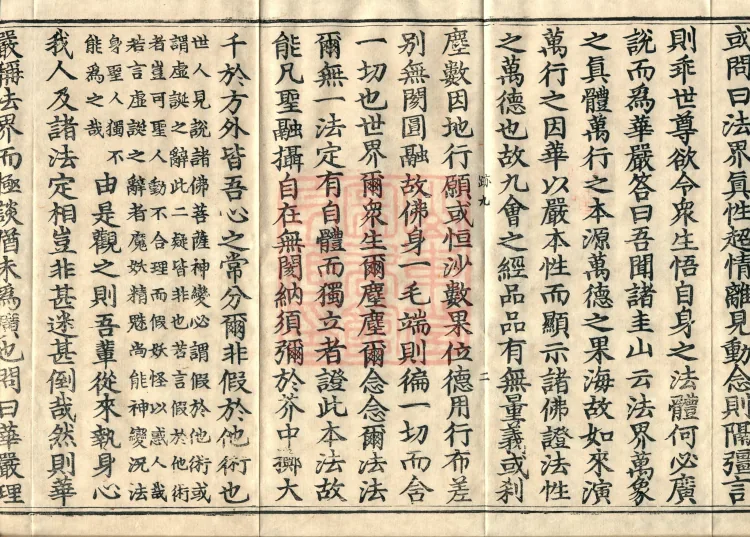 或問曰法界眞性超情離見動念則隔彊言
則乖世尊欲令衆生悟自身之法體何必廣
說而爲華嚴答曰吾聞諸圭山云法界萬象
之眞體萬行之本源萬德之果海故如來演
萬行之因華以嚴本性而顯示諸佛證法性
之萬德也故九會之經品品有無量義或刹
跡九 二
塵數因地行願或恒沙數果位德用行布差
別無閡圓融故佛身一毛端則徧一切而含
一切也世界爾衆生爾塵塵爾念念爾法法
爾無一法定有自體而獨立者證此本法故
能凡聖融攝自在無閡納須彌於芥中擲大
千於方外皆吾心之常分爾非假於他術也
世人見說諸佛菩薩神變必謂假於他術或
謂虛誕之辭此二疑皆非也若言假於他術
者豈可聖人動不合理而假妖怪以惑人哉
若言虛誕之辭者魔妖精魅尚能神變況法
身聖人獨不
能爲之哉
由是觀之則吾輩從來執身心
我人及諸法定相豈非甚迷甚倒哉然則華
嚴稱法界而極談猶未爲廣也問曰華嚴理